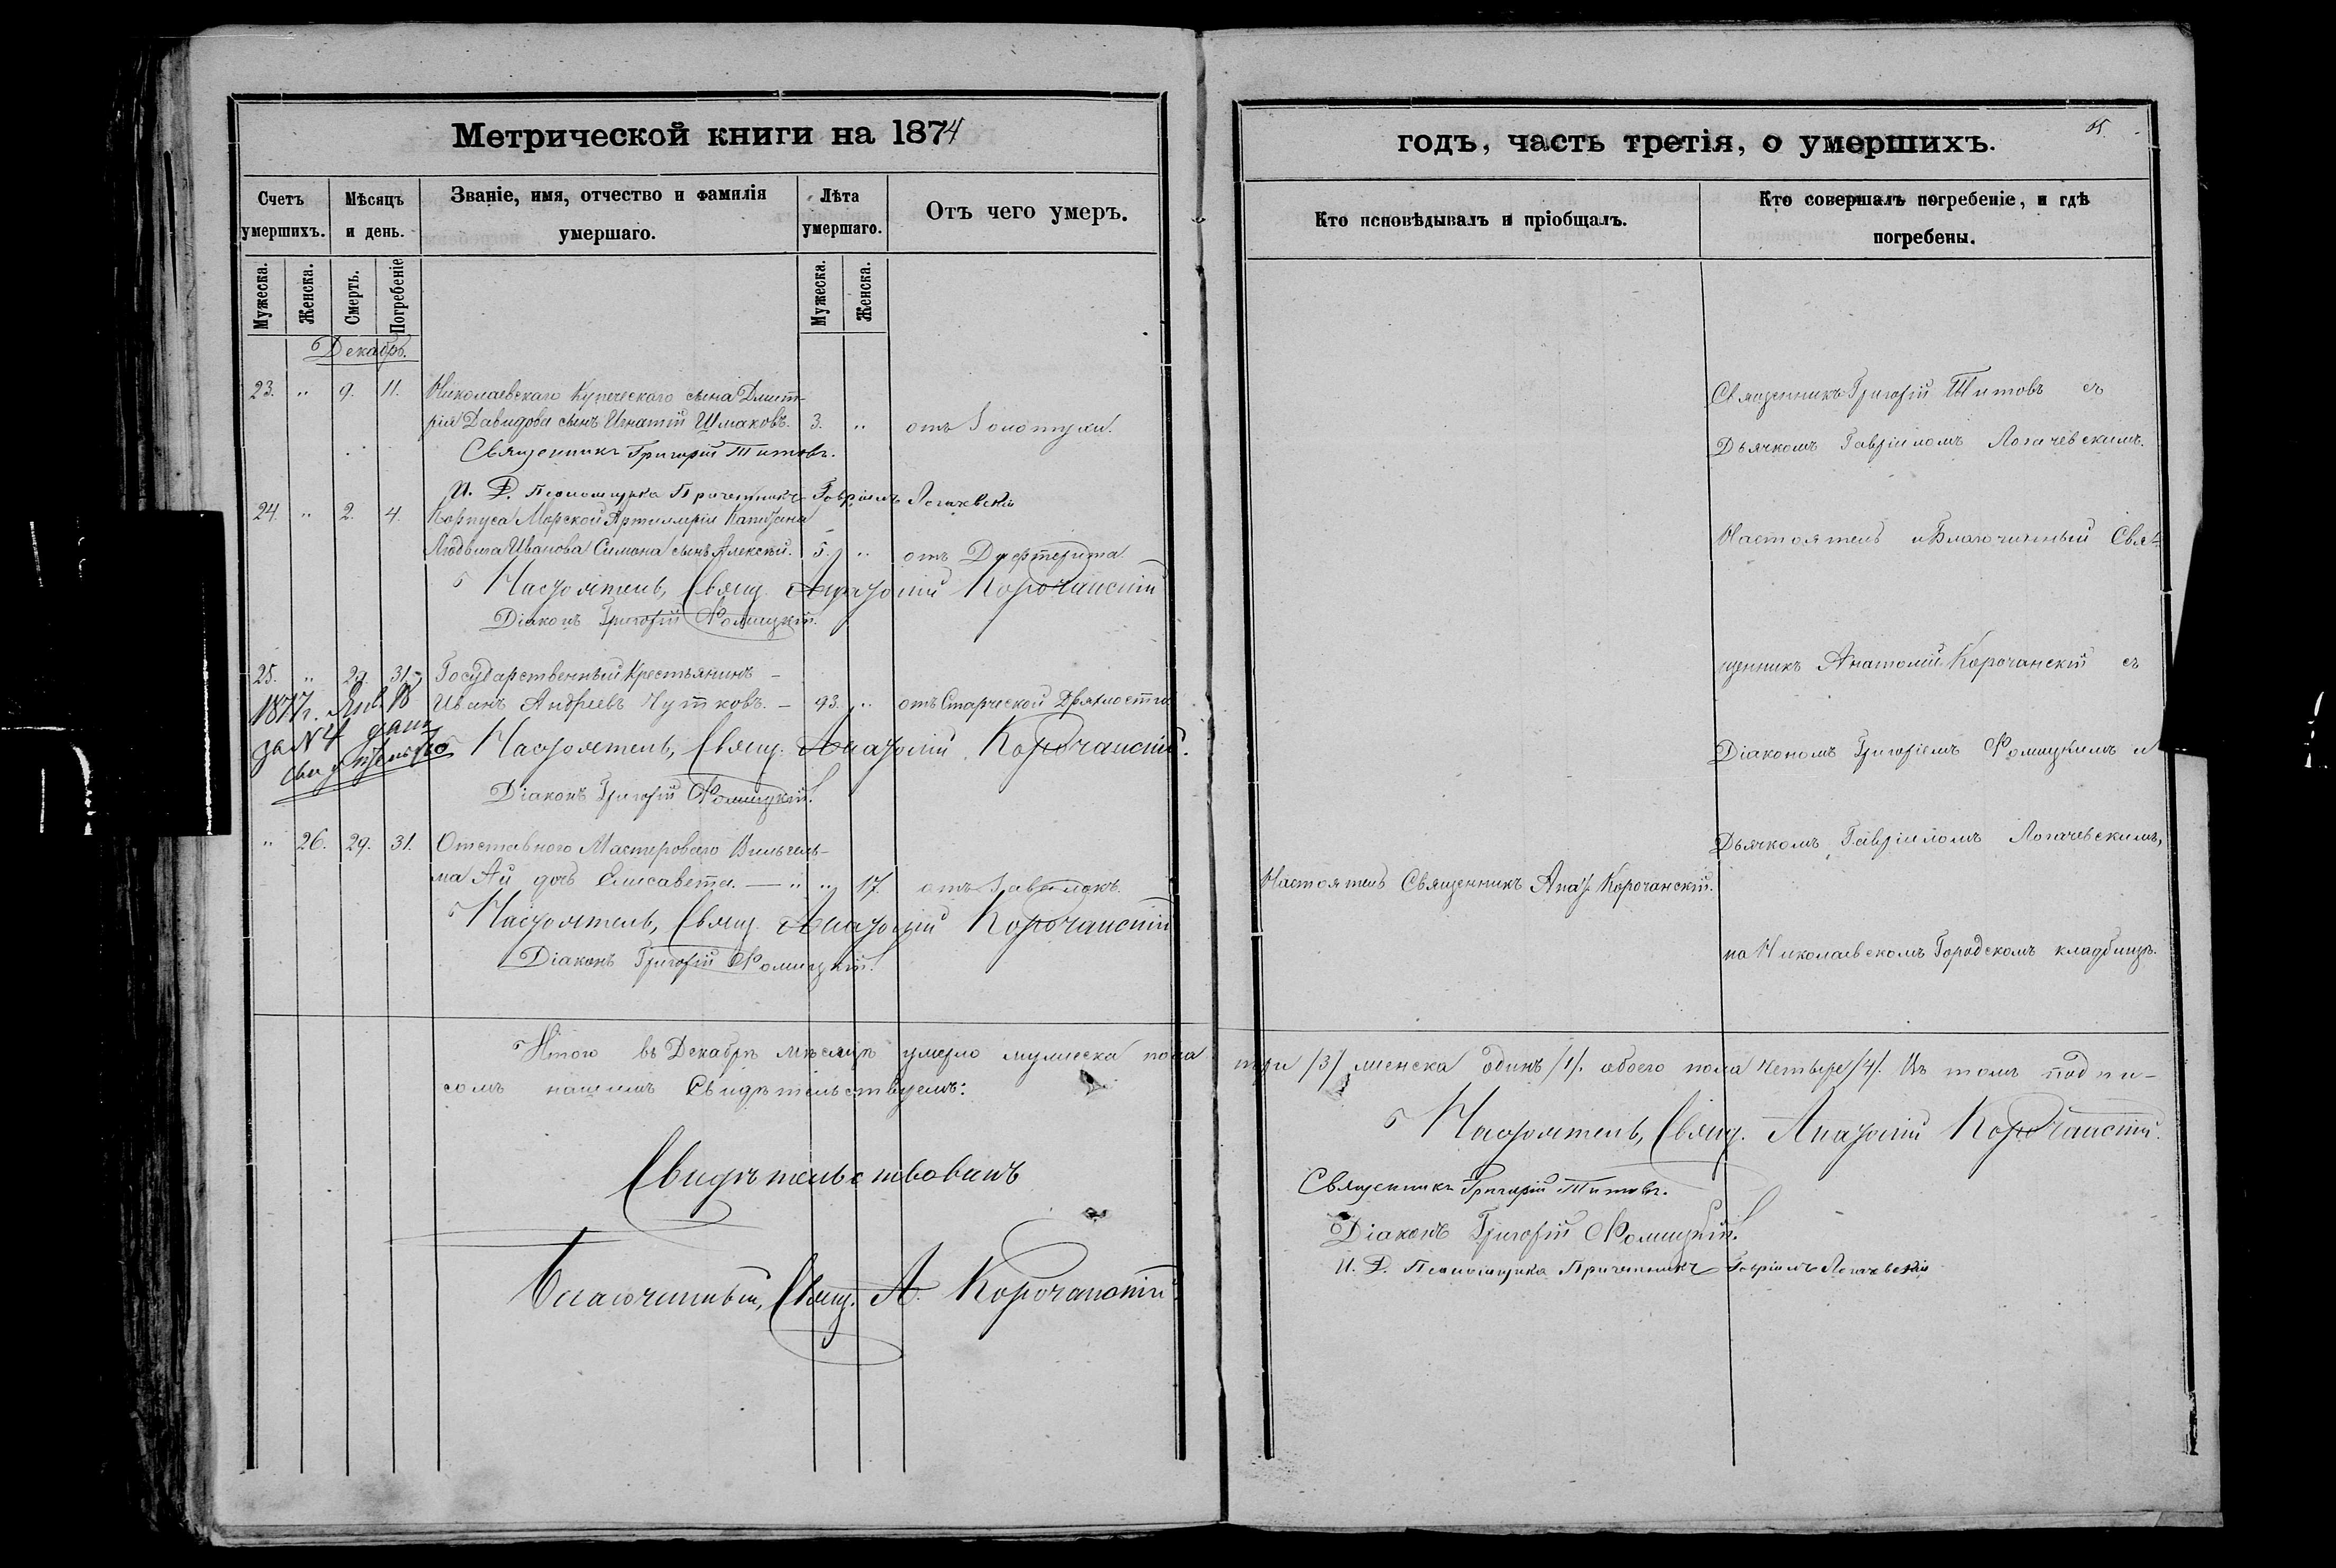 Метрической книги на 1874
Счетъ умершихъ.
Мѣсяцъ и день.
Званіе, имя, отчество и фамилія умершаго.
Лѣта умершаго.
Отъ чего умеръ.
Мужеска.
Женска.
Смерть.
Погребеніе
Мужеска.
Женска.
Декабрь.
23. " 9. 11. Николаевскаго Купеческаго сына Дмит-
рія Давидова сынъ Игнатій Шмаковъ. 3. " отъ Золотухи.
Священникъ Григорій Титовъ.
И. Д. Псаломщика Причетникъ Гавріилъ Логачевскій
24. " 2. 4. Корпуса Морской Артиллеріи Капитана
Людвига Иванова Симона сынъ Алексѣй. 5. " отъ Дифтерита.
Настоятель, Свящ. Анатолій Корочанскій
Діаконъ Григорій Фомицкій.
25. " 29. 31. Государственный Крестьянинъ
Иванъ Андреевъ Чутковъ. — 93. " отъ Старческой Дряхлости
1877г. Янв. 18
за № 4 дано
свидѣтельство
Настоятель, Свящ. Анатолій Корочанскій.
Діаконъ Григорій Фомицкій.
" 26. 29. 31. Отставного Мастероваго Вильгель-
ма Ай дочь Елисавета. — " " 17.
Настоятель, Свящ. Анатолій Корочанскій
Діаконъ Григорій Фомицкій.
Итого въ Декабрѣ мѣсяцѣ умерло мужеска пола
сомъ нашимъ Свидѣтельствуемъ:
Свидѣтельствовалъ
Благочинный, Свящ. А. Корочанскій
годъ, часть третія, о умершихъ.
65.
Кто исповѣдывалъ и пріобщалъ.
Кто совершалъ погребеніе, и гдѣ
погребены.
Священникъ Григорій Титовъ съ
Дьячкомъ Гавріиломъ Логачевскимъ.
Настоятель и Благочинный Свя-
щенникъ Анатолій Корочанскій съ
Діакономъ Григоріемъ Фомицкимъ и
Дьячкомъ Гавріиломъ Логачевскимъ,
Настоятель Священникъ Анат. Корочанскій.
на Николаевскомъ Городскомъ кладбищѣ.
три /3/ женска одинъ /1/. обоего пола четыре /4/. Въ томъ подпи-
Настоятель, Свящ. Анатолій Корочанскій.
Священникъ Григорій Титовъ.
Діаконъ Григорій Фомицкій.
И. Д. Псаломщика Причетникъ Гавріилъ Логачевскій